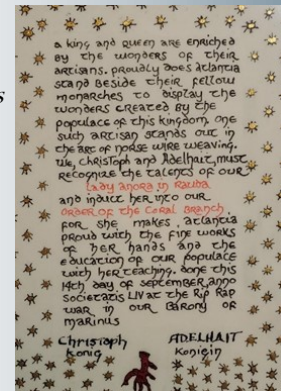 s
a king and queen are enriched
by the wonders of their
artisans. proudly does atlantia
stand beside their fellow
monarchs to display the
wonders created by the
populace of this kingdom. one
such artisan stands out in
the art of norse wire weaving.
we, christoph and adelhait, must
recognize the talents of our
lady anora in rauda
and induct her into our
order of the coral branch.
for she makes atlantia
proud with the fine works
of her hands and the
education of our populace
with her teaching. done this
14th day of september, anno
societatis LIV at the rip rap
war in our barony of
marinus
Christoph ADELHAIT
König Königin